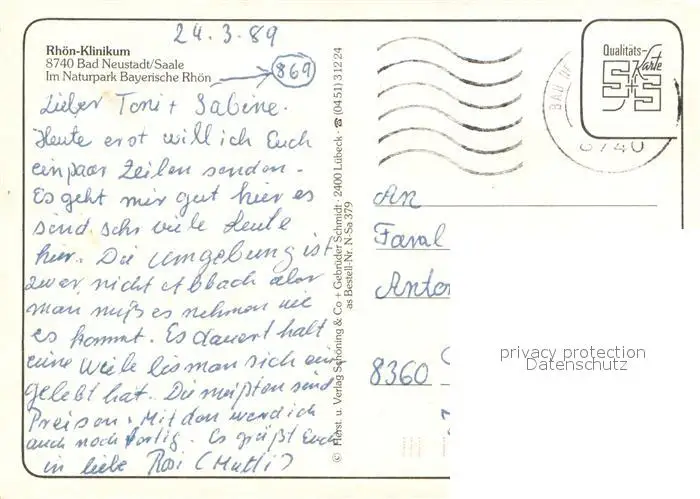 24.3.89
Rhön-Klinikum
8740 Bad Neustadt/Saale
Im Naturpark Bayerische Rhön
869
Lieber Toni + Sabine.
Heute erst will ich Euch
ein paar Zeilen senden.
Es geht mir gut hier es
sind sehr viele Leute
hier. Die Umgebung ist
zwar nicht Abbach aber
man muß es nehmen wie
es kommt. Es dauert halt
eine Weile bis man sich ein
gelebt hat. Die meisten sind
Preisen. Mit den werd ich
auch noch fertig. Es grüßt Euch
in liebe Rosi (Mutti)
© Horst. u. Verlag Schöning & Co + Gebrüder Schmidt · 2400 Lübeck · ☎ (0451) 31224
as Bestell-Nr. N-Sa 379
Qualitäts-
Karte
S+S
BAD
8740
An
Faml
Anton
8360
privacy protection
Datenschutz